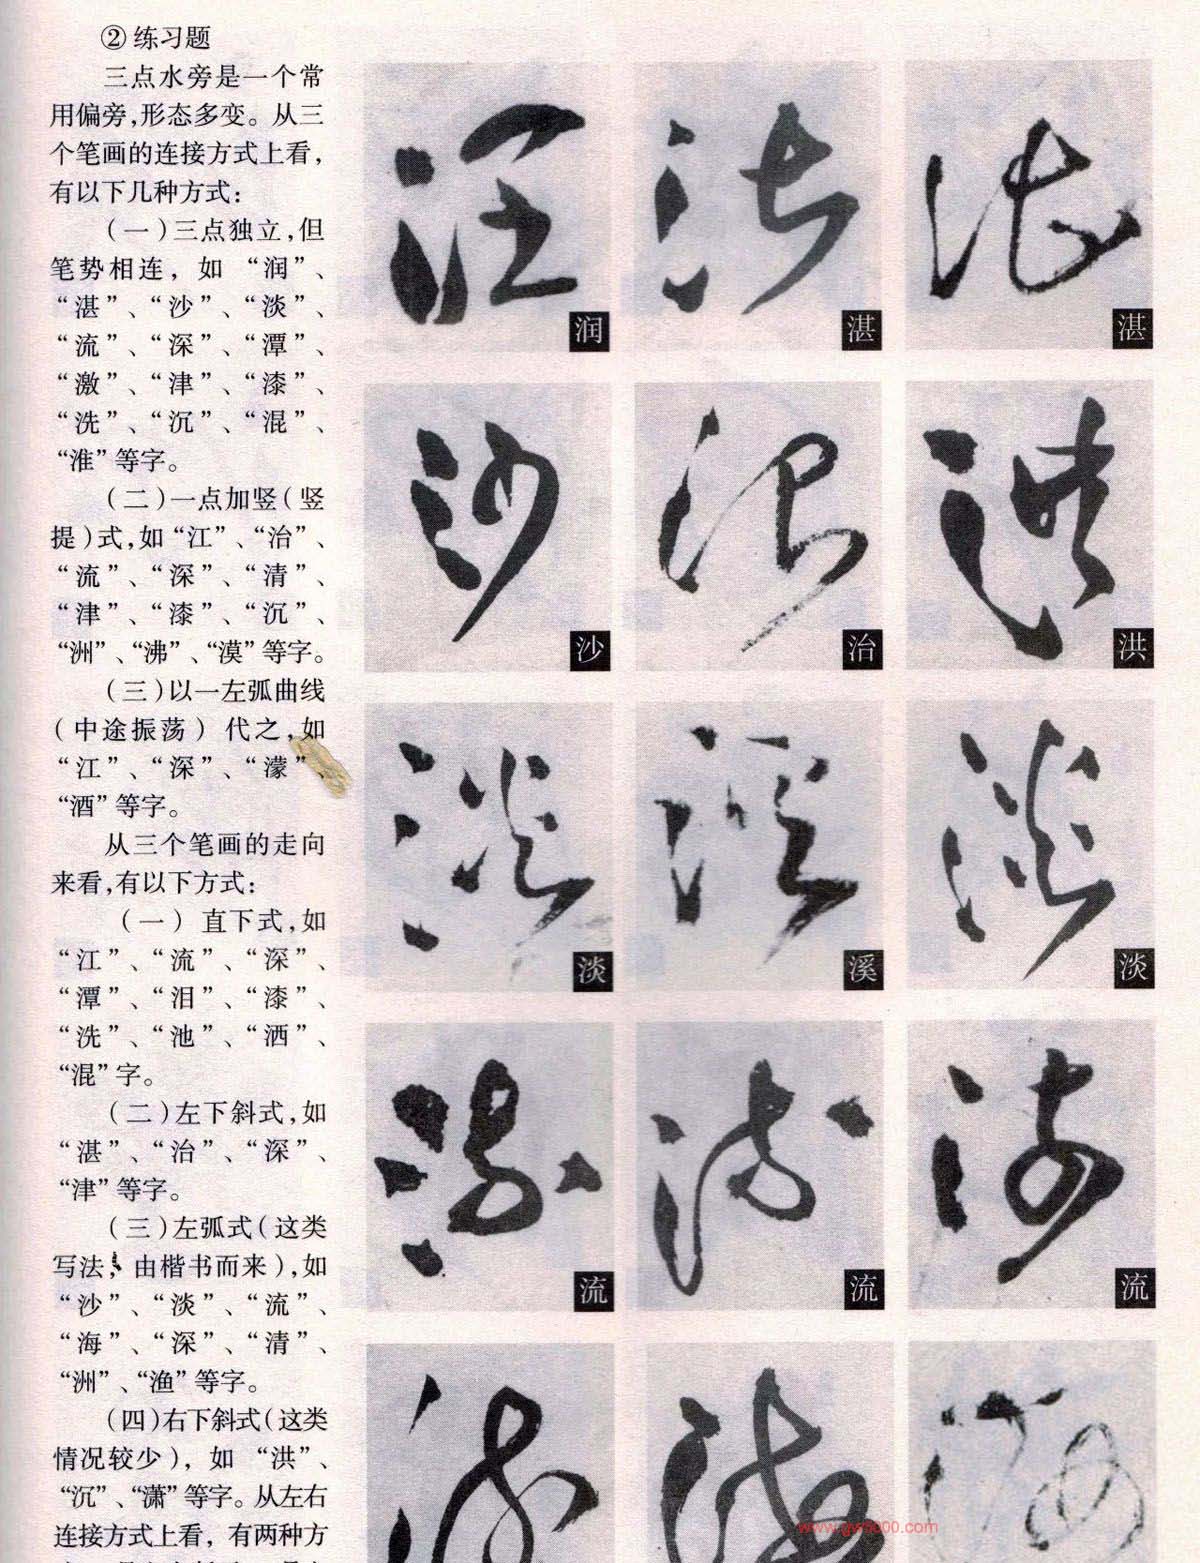 ② 练习题
三点水旁是一个常
用偏旁,形态多变。从三
个笔画的连接方式上看,
有以下几种方式:
(一)三点独立,但
笔势相连, 如 “润”、
“湛”、“沙”、“淡”、
“流”、“深”、“潭”、
“激”、“津”、“漆”、
“洗”、“沉”、“混”、
“淮”等字。
(二)一点加竖(竖
提)式,如“江”、“治”、
“流”、“深”、“清”、
“津”、“漆”、“沉”、
“洲”、“沸”、“漠”等字。
(三)以一左弧曲线
(中途振荡) 代之,如
“江”、“深”、“濛”、
“酒”等字。
从三个笔画的走向
来看,有以下方式:
(一) 直下式,如
“江”、“流”、“深”、
“潭”、“泪”、“漆”、
“洗”、“池”、“洒”、
“混”字。
(二)左下斜式,如
“湛”、“治”、“深”、
“津”等字。
(三)左弧式(这类
写法, 由楷书而来),如
“沙”、“淡”、“流”、
“海”、“深”、“清”、
“洲”、“渔”等字。
(四)右下斜式(这类
情况较少), 如 “洪”、
“沉”、“潇”等字。从左右
连接方式上看, 有两种方
润
湛
湛
沙
治
洪
淡
溪
淡
流
流
流
www.gw5000.com